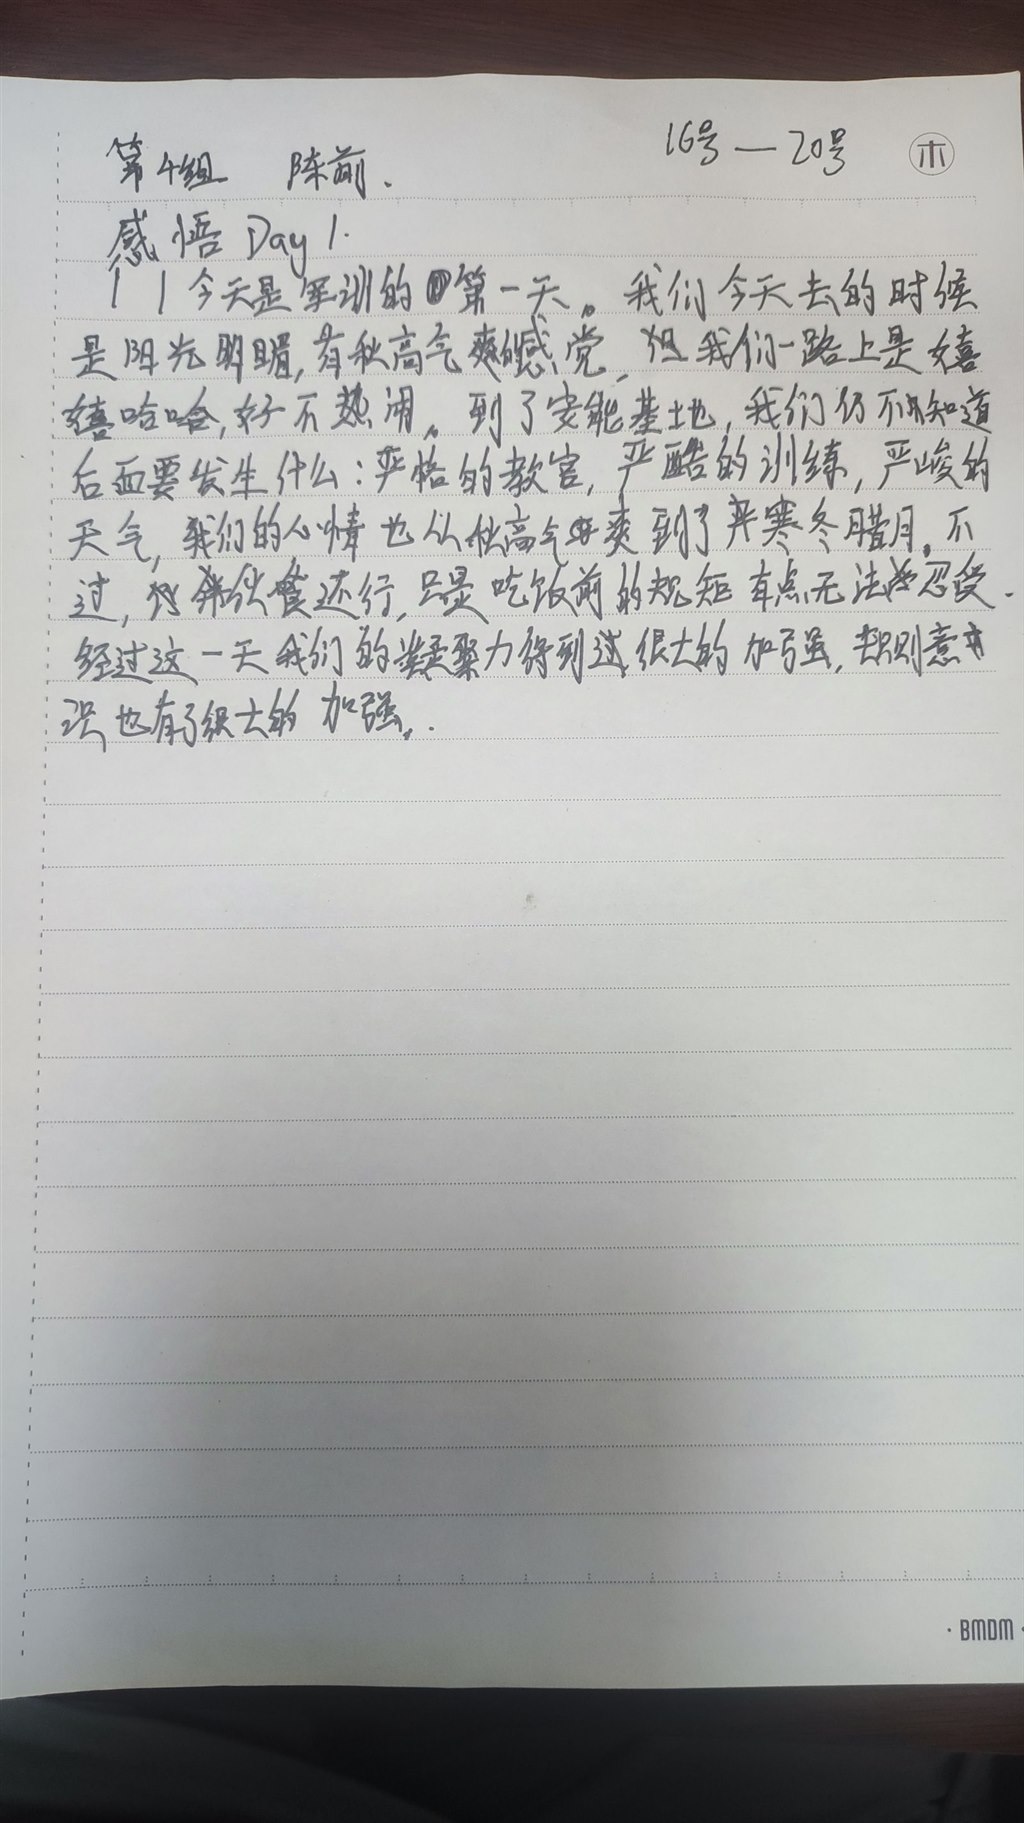 16号—20号 木
第4组 陈前.
感悟 Day 1.
今天是军训的第一天。我们今天去的时候
是阳光明媚,有秋高气爽的感觉,但我们一路上是嘻
嘻哈哈,好不热闹。到了安能基地,我们仍不知道
后面要发生什么:严格的教官,严酷的训练,严峻的
天气,我们的心情也从秋高气爽到了严寒冬腊月。不
过,伙食还行,只是吃饭前的规矩有点无法忍受.
经过这一天我们的凝聚力得到过很大的加强,规则意
识也有了很大的加强。.
· BMDM ·